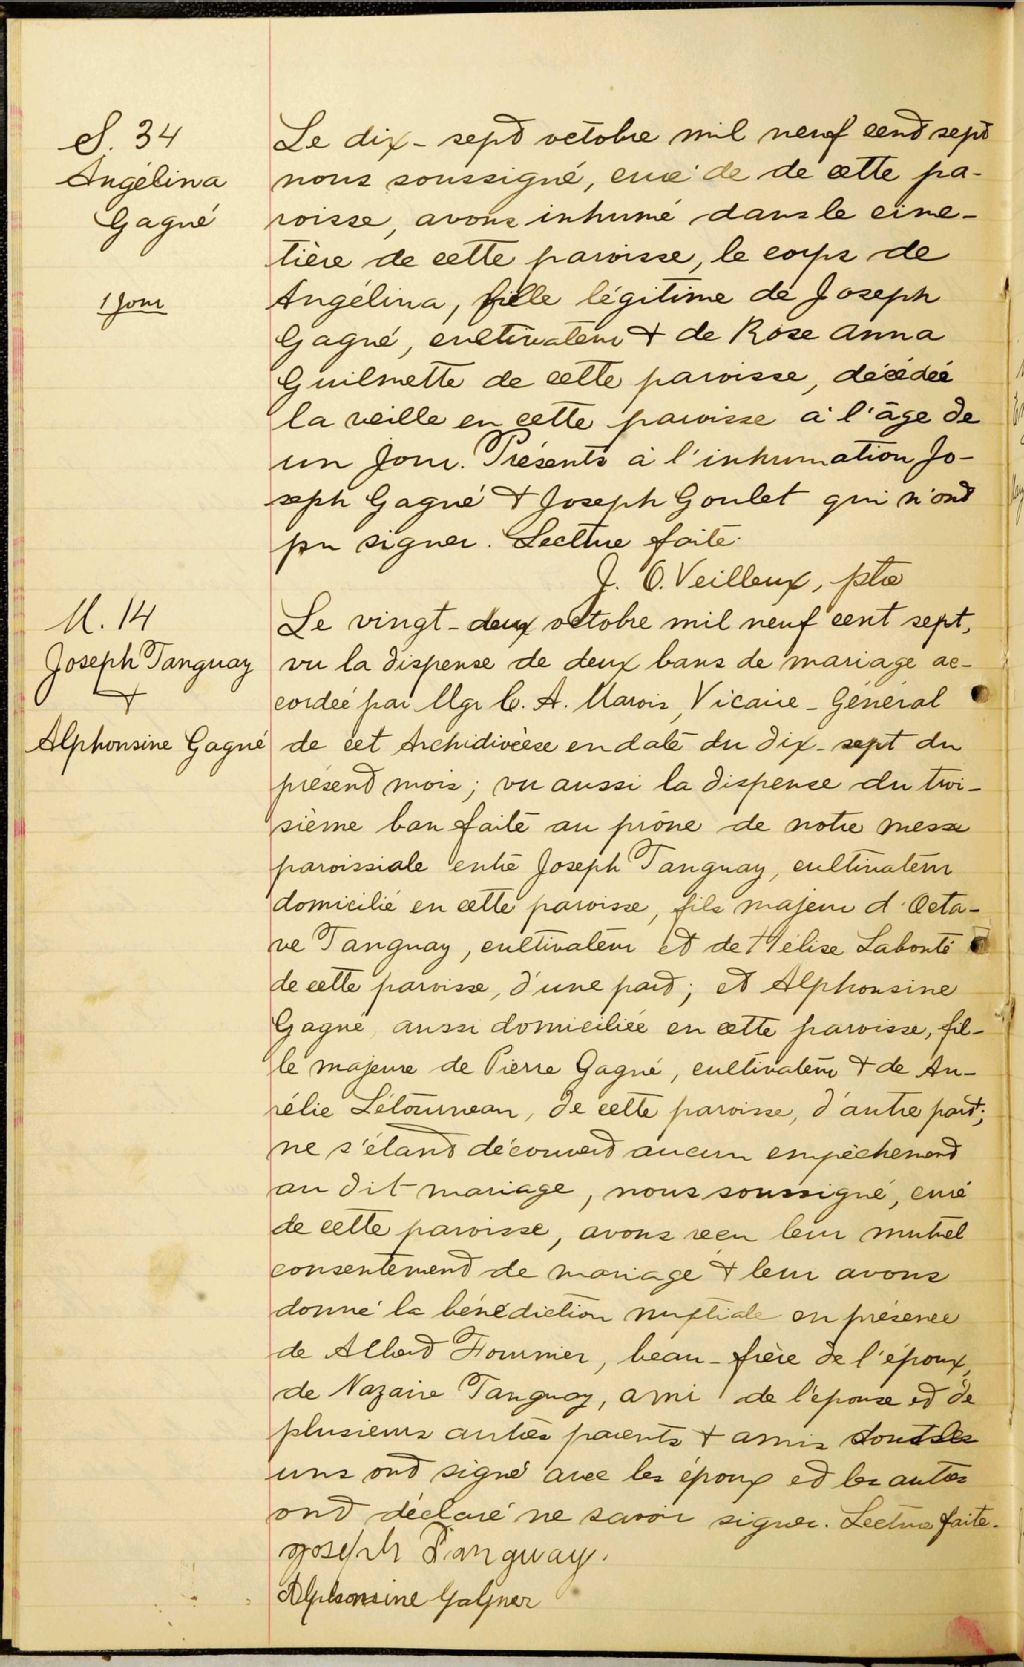 S. 34
Angélina
Gagné
1 jour
Le dix-sept octobre mil neuf cent sept
nous soussigné, curé de de cette pa-
roisse, avons inhumé dans le cime-
tière de cette paroisse, le corps de
Angélina, fille légitime de Joseph
Gagné, cultivateur & de Rose Anna
Guilmette de cette paroisse, décédée
la veille en cette paroisse à l'âge de
un jour. Présents à l'inhumation Jo-
seph Gagné & Joseph Goulet qui n'ont
pu signer. Lecture faite.
J. O. Veilleux, ptre
M. 14
Joseph Tanguay
&
Alphonsine Gagné
Le vingt-deux octobre mil neuf cent sept,
vu la dispense de deux bans de mariage ac-
cordée par Mgr C. A. Marois, Vicaire-Général
de cet Archidiocèse en date du dix-sept du
présent mois; vu aussi la dispense du troi-
sième ban faite au prône de notre messe
paroissiale entre Joseph Tanguay, cultivateur
domicilié en cette paroisse, fils majeur d'Octa-
ve Tanguay, cultivateur et de Hélise Labonté
de cette paroisse, d'une part; et Alphonsine
Gagné aussi domiciliée en cette paroisse, fil-
le majeure de Pierre Gagné, cultivateur & de Au-
rélie Létourneau, de cette paroisse, d'autre part;
ne s'étant découvert aucun empêchement
au dit mariage, nous soussigné, curé
de cette paroisse, avons reçu leur mutuel
consentement de mariage & leur avons
donné la bénédiction nuptiale en présence
de Albert Fournier, beau-frère de l'époux,
de Nazaire Tanguay, ami de l'épouse et de
plusieurs autres parents & amis dont les
uns ont signé avec les époux et les autres
ont déclaré ne savoir signer. Lecture faite.
Joseph Tanguay.
Alphonsine Gagner